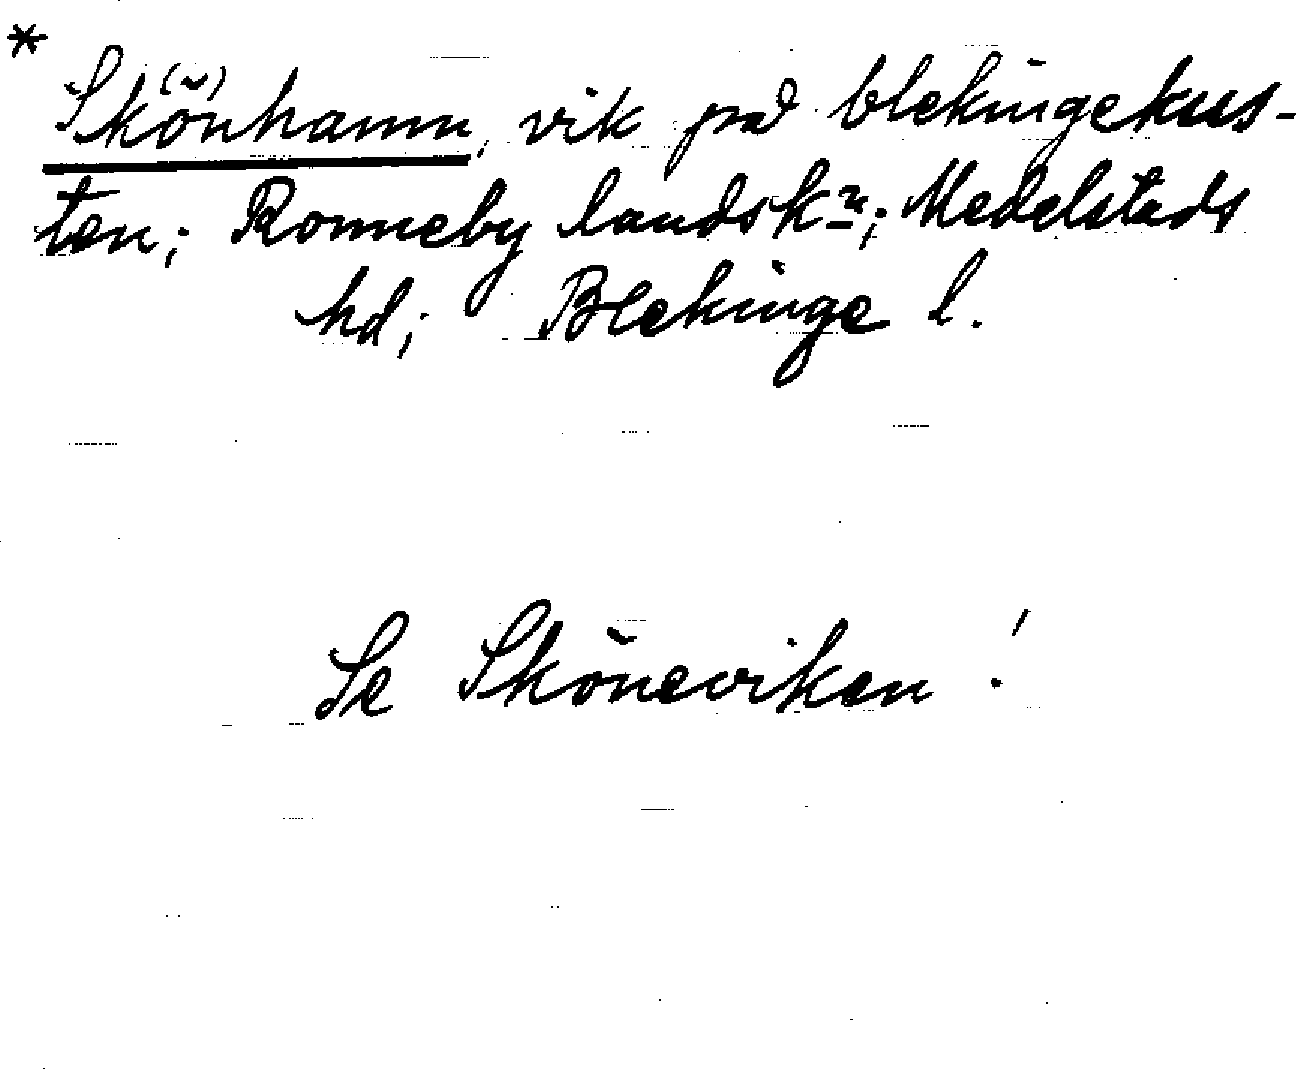 *
Skönhamn, vik på blekingekus-
ten; Ronneby landskn; Medelstads
hd; Blekinge l.
Se Sköneviken!